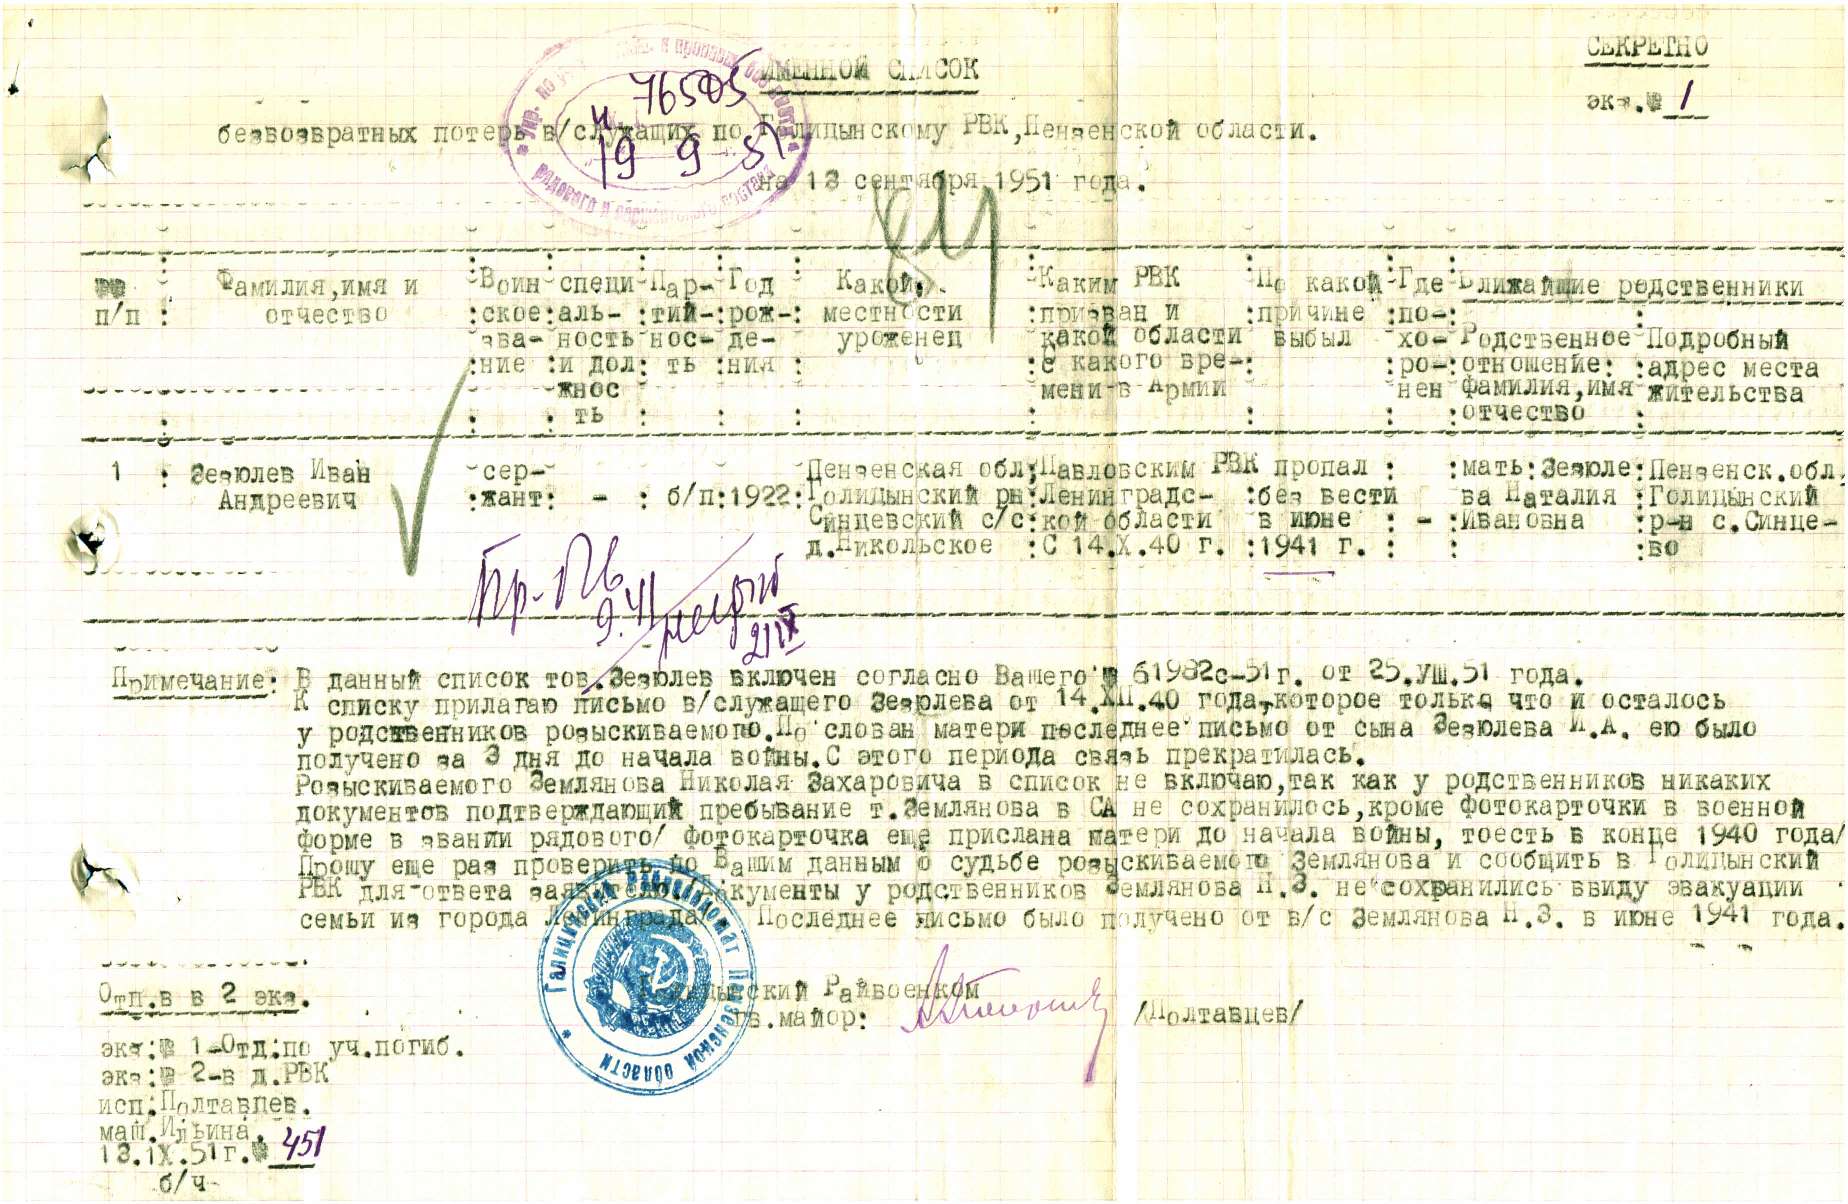 СЕКРЕТНО
экз.№ 1
ИМЕННОЙ СПИСОК
76505
безвозвратных потерь в/служащих по Голицынскому РВК,Пензенской области.
19 9 51
на 13 сентября 1951 года.
84
№№ п/п : Фамилия,имя и отчество : Воинское звание : специальность и должность : Партийность : Год рождения : Какой местности уроженец : Каким РВК призван и какой области с какого времени в Армии : По какой причине выбыл : Где похоронен : Ближайшие родственники
Родственное отношение: фамилия,имя отчество : Подробный адрес места жительства
1 : Зезюлев Иван :сер- : : : :Пензенская обл;Павловским РВК пропал : :мать:Зезюле:Пензенск.обл,
Андреевич :жант: - : б/п:1922:Голицынский рн:Ленинградс- :без вести :ва Наталия :Голицынский
Синцевский с/с:кой области в июне : - :Ивановна :р-н с.Синце-
д.Никольское :С 14.X.40 г. :1941 г. : : :во
Пр-Пв
9.41
21/IX
Примечание: В данный список тов.Зезюлев включен согласно Вашего № 61982с-51г. от 25.УШ.51 года.
К списку прилагаю письмо в/служащего Зезюлева от 14.XII.40 года,которое только что и осталось
у родственников розыскиваемого.По слован матери последнее письмо от сына Зезюлева И.А. ею было
получено за 3 дня до начала войны.С этого периода связь прекратилась.
Розыскиваемого Землянова Николая Захаровича в список не включаю,так как у родственников никаких
документов подтверждающий пребывание т.Землянова в СА не сохранилось,кроме фотокарточки в военной
форме в звании рядового/ фотокарточка еще прислана матери до начала войны, тоесть в конце 1940 года/
Прошу еще раз проверить по Вашим данным о судьбе розыскиваемого Землянова и сообщить в Голицынский
РВК для ответа заявителю. Документы у родственников Землянова Н.З. не сохранились ввиду эвакуации
семьи из города Ленинграда. Последнее письмо было получено от в/с Землянова Н.З. в июне 1941 года.
Голицынский Райвоенком
гв.майор: /Полтавцев/
Отп.в в 2 экз.
экз:№ 1-Отд:по уч.погиб.
экз:№ 2-в д.РВК
исп:Полтавцев.
маш.Ильина.
13.IX.51г.№ 451
б/ч